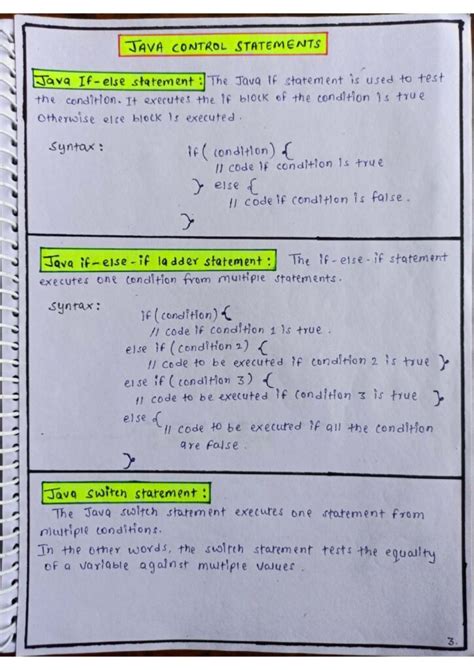 JAVA CONTROL STATEMENTS
Java If-else statement : The Java if statement is used to test
the condition. It executes the if block of the condition is true
otherwise else block is executed.
Syntax : if ( condition) {
// code if condition is true
} else {
// code if condition is false.
}
Java if-else-if ladder statement : The if-else-if statement
executes one condition from multiple statements.
Syntax :
if (condition) {
// code if condition 1 is true.
else if ( condition 2) {
// code to be executed if condition 2 is true }
else if ( condition 3) {
// code to be executed if condition 3 is true }
else {
// code to be executed if all the condition
are false.
}
Java switch statement :
The Java switch statement executes one statement from
multiple conditions.
In the other words, the switch statement tests the equality
of a variable against multiple values.
3.